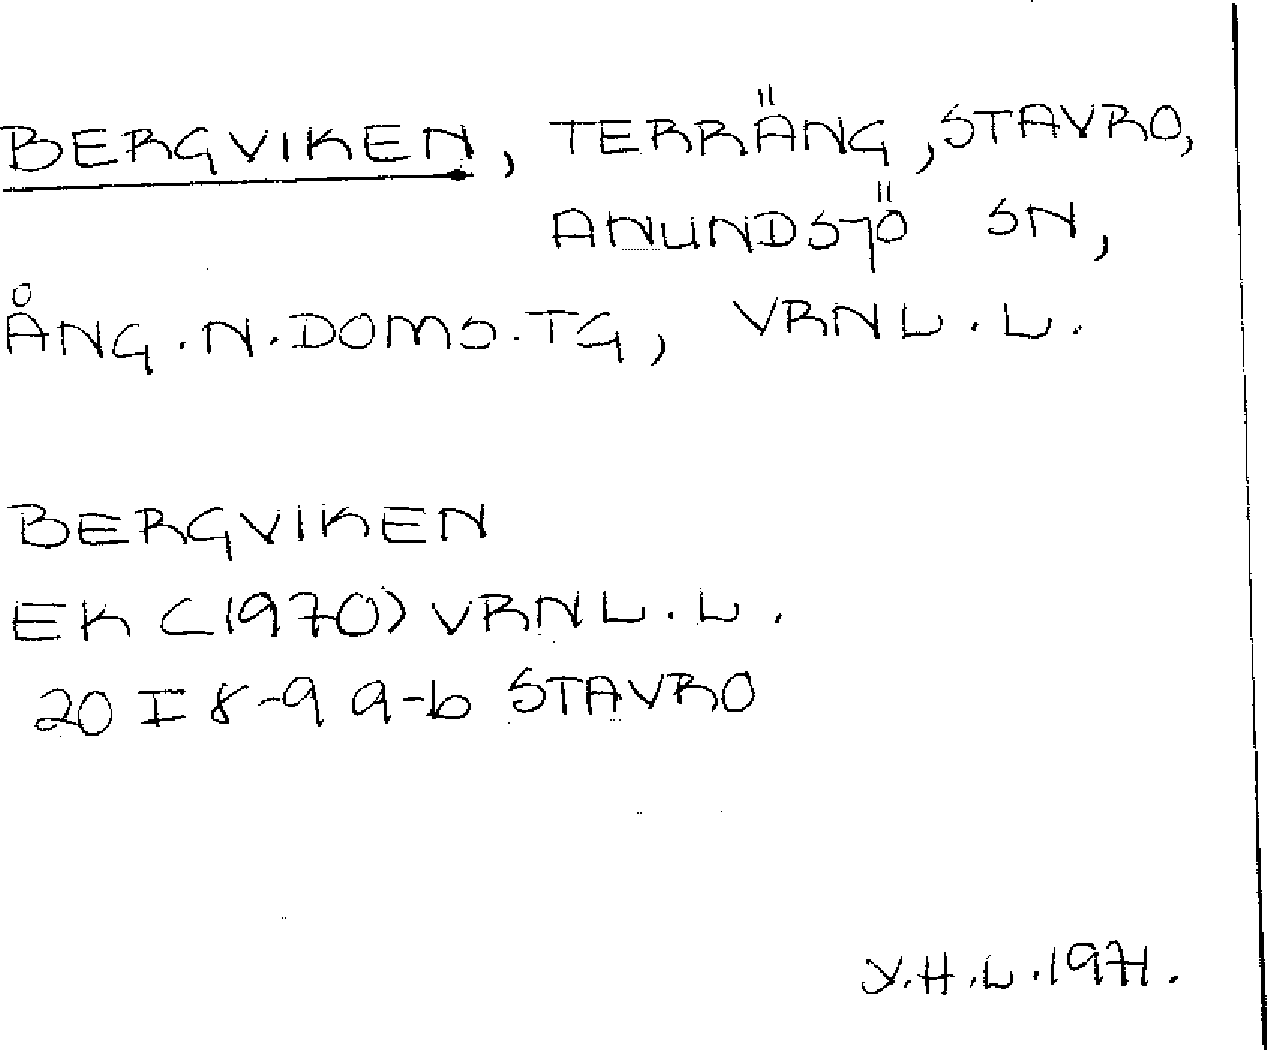 BERGVIKEN, TERRÄNG, STAVRO,
ANUNDSJÖ SN,
ÅNG. N. DOMS. TG, VRNL. L.
BERGVIKEN
EK (1970) VRNL. L.
20 I 8-9 a-b STAVRO
Y.H.L. 1971.